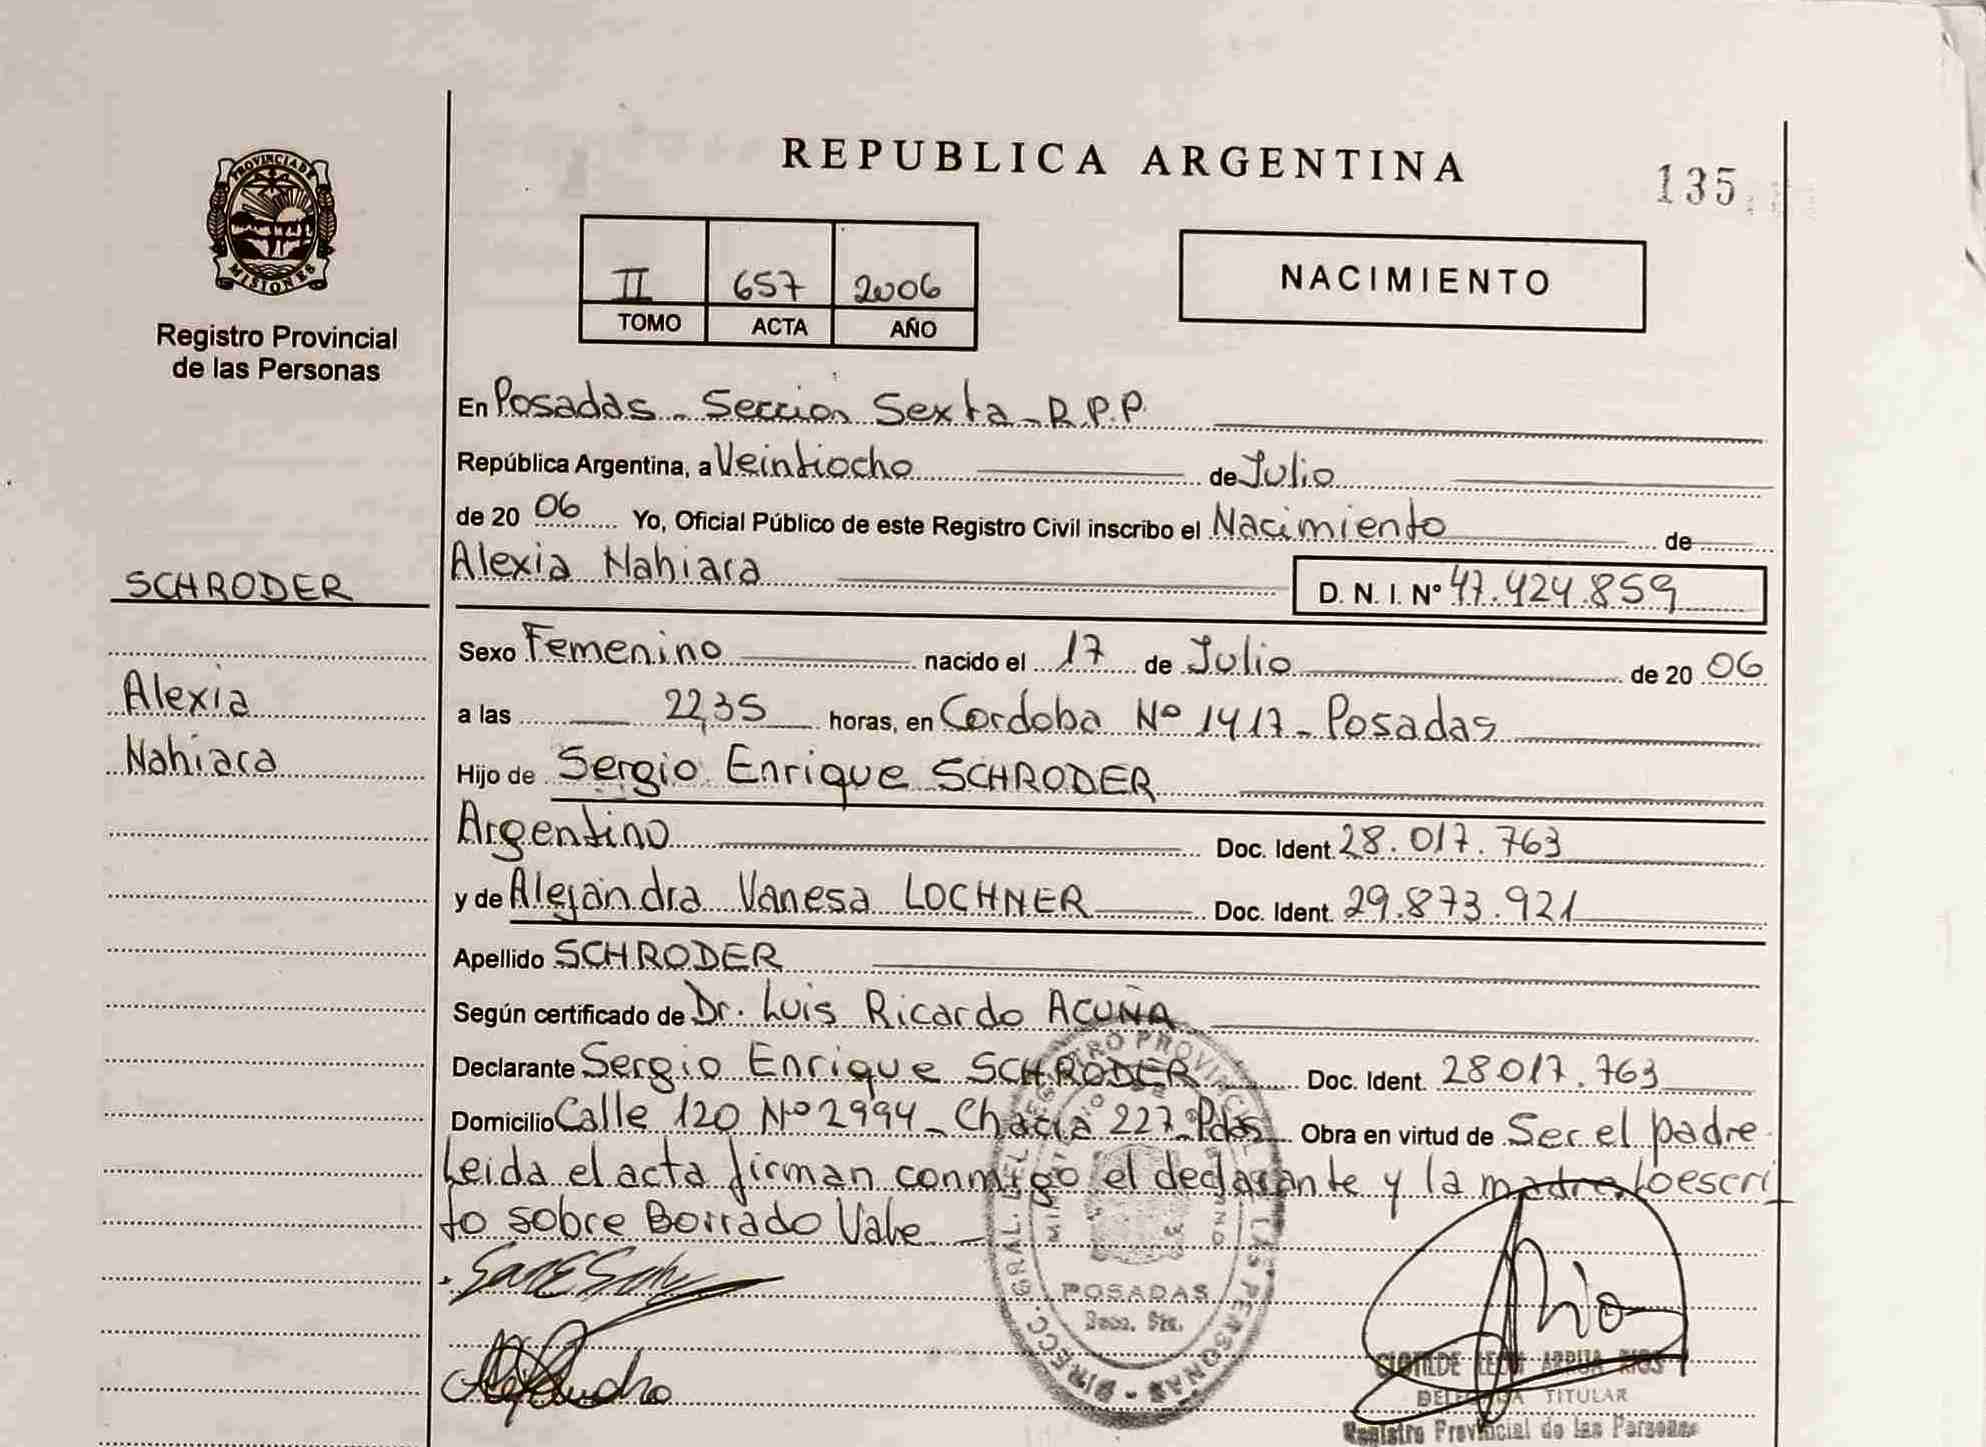 REPUBLICA ARGENTINA
135
PROVINCIA DE
MISIONES
Registro Provincial
de las Personas
II 657 2006
TOMO ACTA AÑO
NACIMIENTO
En Posadas - Seccion Sexta - R.P.P.
República Argentina, a Veintiocho de Julio
de 20 06 Yo, Oficial Público de este Registro Civil inscribo el Nacimiento de
Alexia Nahiara D. N. I. Nº 47.424.859
SCHRODER
Alexia
Nahiara
Sexo Femenino nacido el 17 de Julio de 20 06
a las 22,35 horas, en Cordoba Nº 1417 - Posadas
Hijo de Sergio Enrique SCHRODER
Argentino Doc. Ident. 28.017.763
y de Alejandra Vanesa LOCHNER Doc. Ident. 29.873.921
Apellido SCHRODER
Según certificado de Dr. Luis Ricardo ACUÑA
Declarante Sergio Enrique SCHRODER Doc. Ident. 28017.763
Domicilio Calle 120 Nº 2994 - Chacra 227 - Pdas Obra en virtud de Ser el padre
Leida el acta firman conmigo el declarante y la madre. Lo escri
to sobre Borrado Vale
POSADAS
DELEGADA TITULAR
Registro Provincial de las Personas